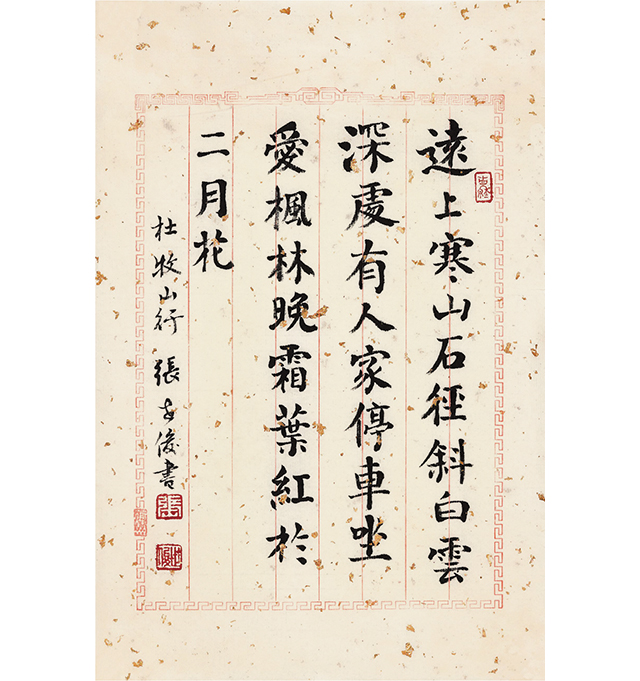 遠上寒山石徑斜白雲
深處有人家停車坐
愛楓林晚霜葉紅於
二月花
杜牧山行 張世俊書
張